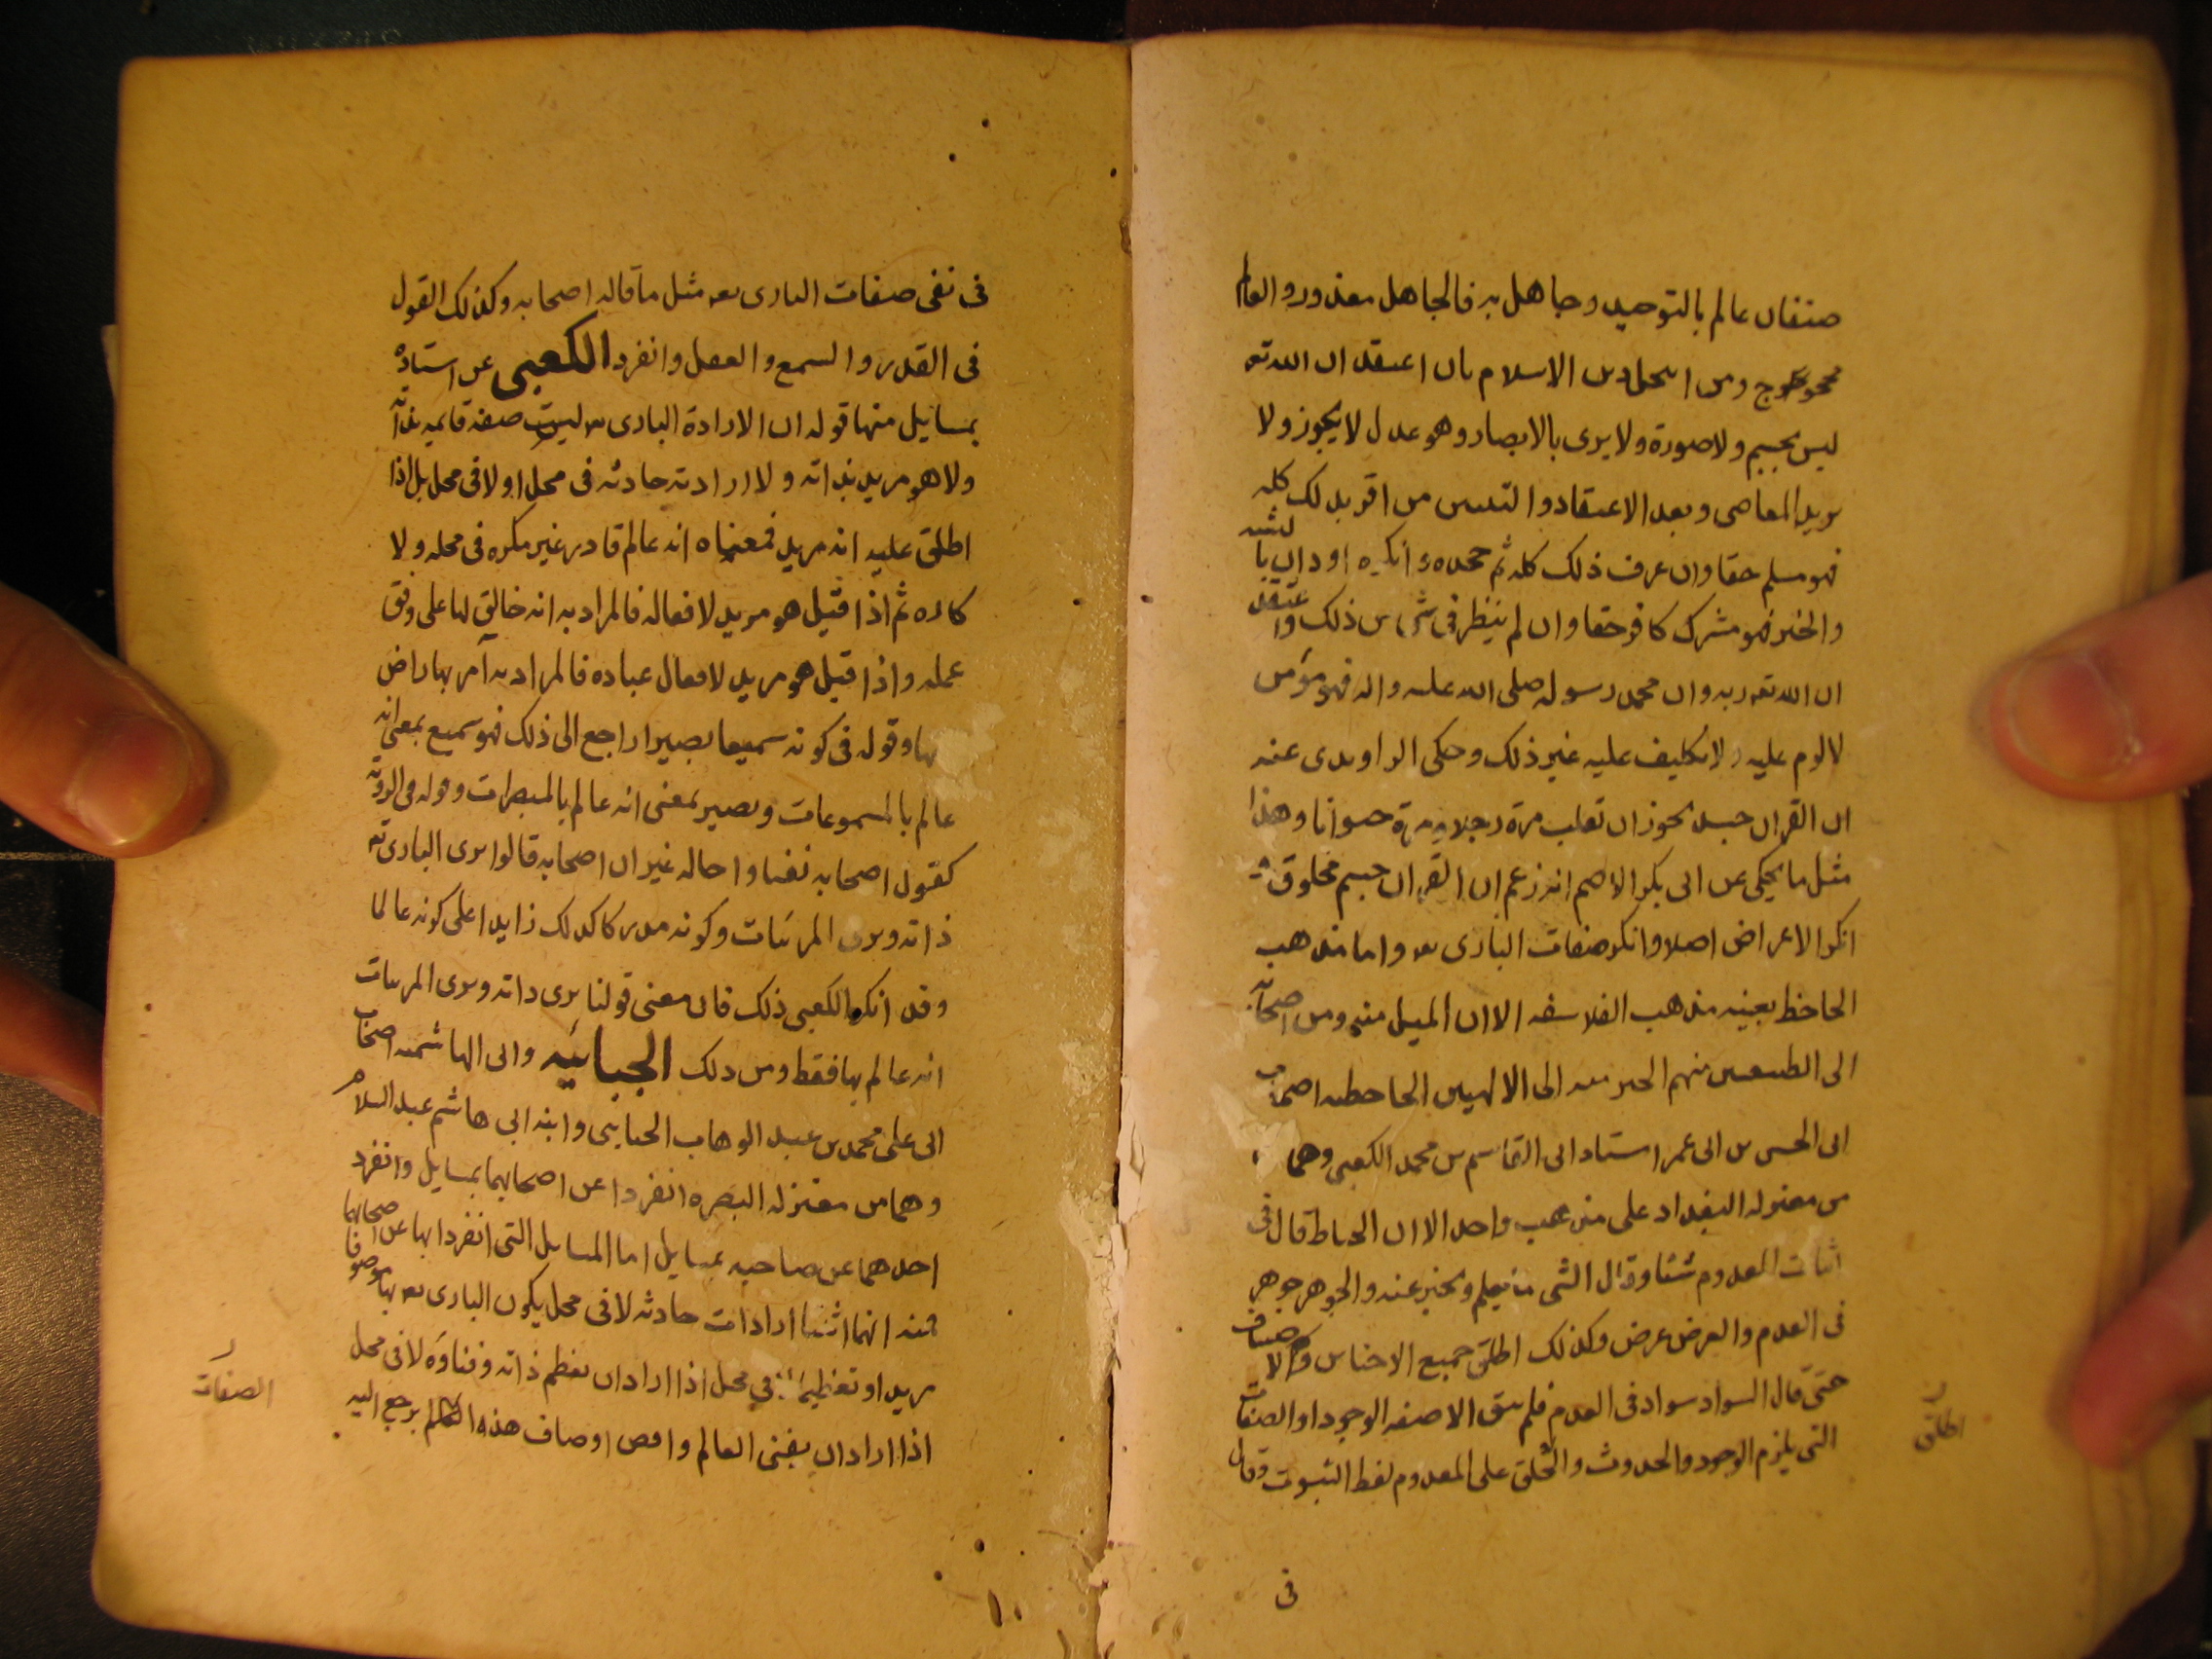 صنفان عالم بالتوحيد وجاهل به فالجاهل معذور والعالم
محجوج ومن انتحل دين الاسلام بان اعتقد ان الله تع
ليس بجسم ولا صورة ولا يرى بالابصار وهو عدل لا يجوز ولا
يريد المعاصى وبعد الاعتقاد والتبيين من اقر بذلك كله
فهو مسلم حقا وان عرف ذلك كله ثم جحده وانكره او دان بالتشبيه
والخبر فهو مشرك كافر حقا وان لم ينظر فى شى من ذلك واعتقد
ان الله تع ربه وان محمد رسوله صلى الله عليه واله فهو مؤمن
لا لوم عليه ولا تكليف عليه غير ذلك وحكى الراوندى عنه
ان القران جسد يجوز ان تقلب مرة رجلا ومرة حيوانا وهذا
مثل ما يحكى عن ابى بكر الاصم انه زعم ان القران جسم مخلوق
انكر الاعراض اصلا وانكر صفات البارى تع واما مذهب
الجاحظ بعينه مذهب الفلاسفه الا ان الميل منه ومن اصحابه
الى الطبيعيين منهم اكثر منه الى الالهيين الجاحظيه اصحاب
ابى الحسن بن ابى عمر استاد ابى القاسم بن محمد الكعبى وهما
من معتزله البغداد على مذهب واحد الا ان الخياط قال فى
اثبات المعدوم شئا وقال الشى ما يعلم ويخبر عنه والجوهر جوهر
فى العدم والعرض عرض وكذلك اطلق جميع الاجناس والاصناف
حتى قال السواد سواد فى العدم فلم يبق الا صفه الوجود او الصفات
التى يلزم الوجود والحدوث واطلق على المعدوم لفظ الثبوت وقال
اطلق
فى
فى نفى صفات البارى تع مثل ما قاله اصحابه وكذلك القول
فى القدر والسمع والعقل وانفرد الكعبى عن استاده
بمسايل منها قوله ان الارادة البارى تع ليست صفه قايمه بذاته
ولا هو مريد بذاته ولا ارادته حادثه فى محل او لا فى محل بل اذا
اطلق عليه انه مريد فمعناه انه عالم قادر غير مكره فى محله ولا
كاره ثم اذا قيل هو مريد لافعاله فالمراد به انه خالق لها على وفق
علمه واذا قيل هو مريد لافعال عباده فالمراد به آمر بها راض
بها وقوله فى كونه سميعا بصيرا راجع الى ذلك فهو سميع بمعنى انه
عالم بالمسموعات وبصير بمعنى انه عالم بالمبصرات وقوله فى الروية
كقول اصحابه نفيا واحاله غير ان اصحابه قالوا يرى البارى تع
ذاته ويرى المرئيات وكونه مدركا كذلك زايد اعلى كونه عالما
وقد انكر الكعبى ذلك قال معنى قولنا يرى ذاته ويرى المرئيات
انه عالم بها فقط ومن ذلك الجبائيه وابى الهاشميه اصحاب
ابى على محمد بن عبد الوهاب الجبايى وابنه ابى هاشم عبد السلام
وهما من معتزله البصره انفردا عن اصحابهما بمسايل وانفرد
احدهما عن صاحبه بمسايل اما المسايل التى انفردا بها عن اصحابهما
فمنه انهما اثبتا ارادات حادثه لا فى محل يكون البارى تع بها موصوفا
مريد او تعظيما فى محل اذا اراد ان يعظم ذاته وفناؤه لا فى محل
اذا اراد ان يفنى العالم واخص اوصاف هذه يرجع اليه
الصفات